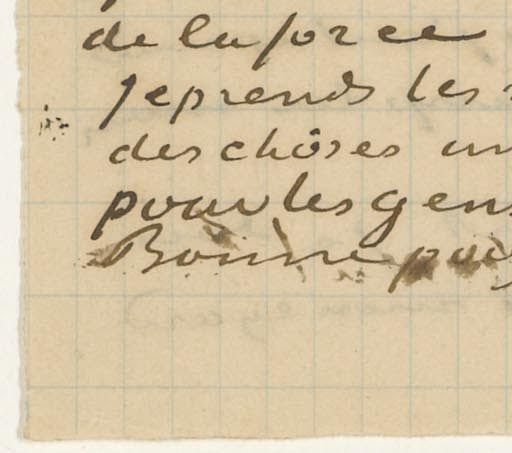 de la force
je prends les
des chôses un
pour les gens
Bonne pour